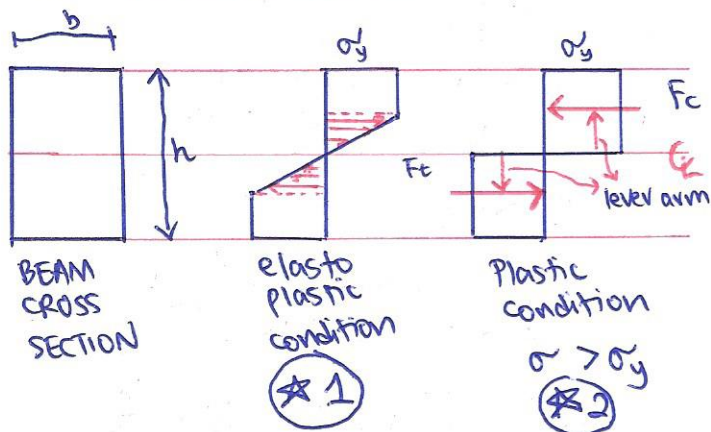 b
h
σy
σy
Fc
Ft
℄
lever arm
BEAM
CROSS
SECTION
elasto
plastic
condition
☆1
Plastic
condition
σ > σy
☆2